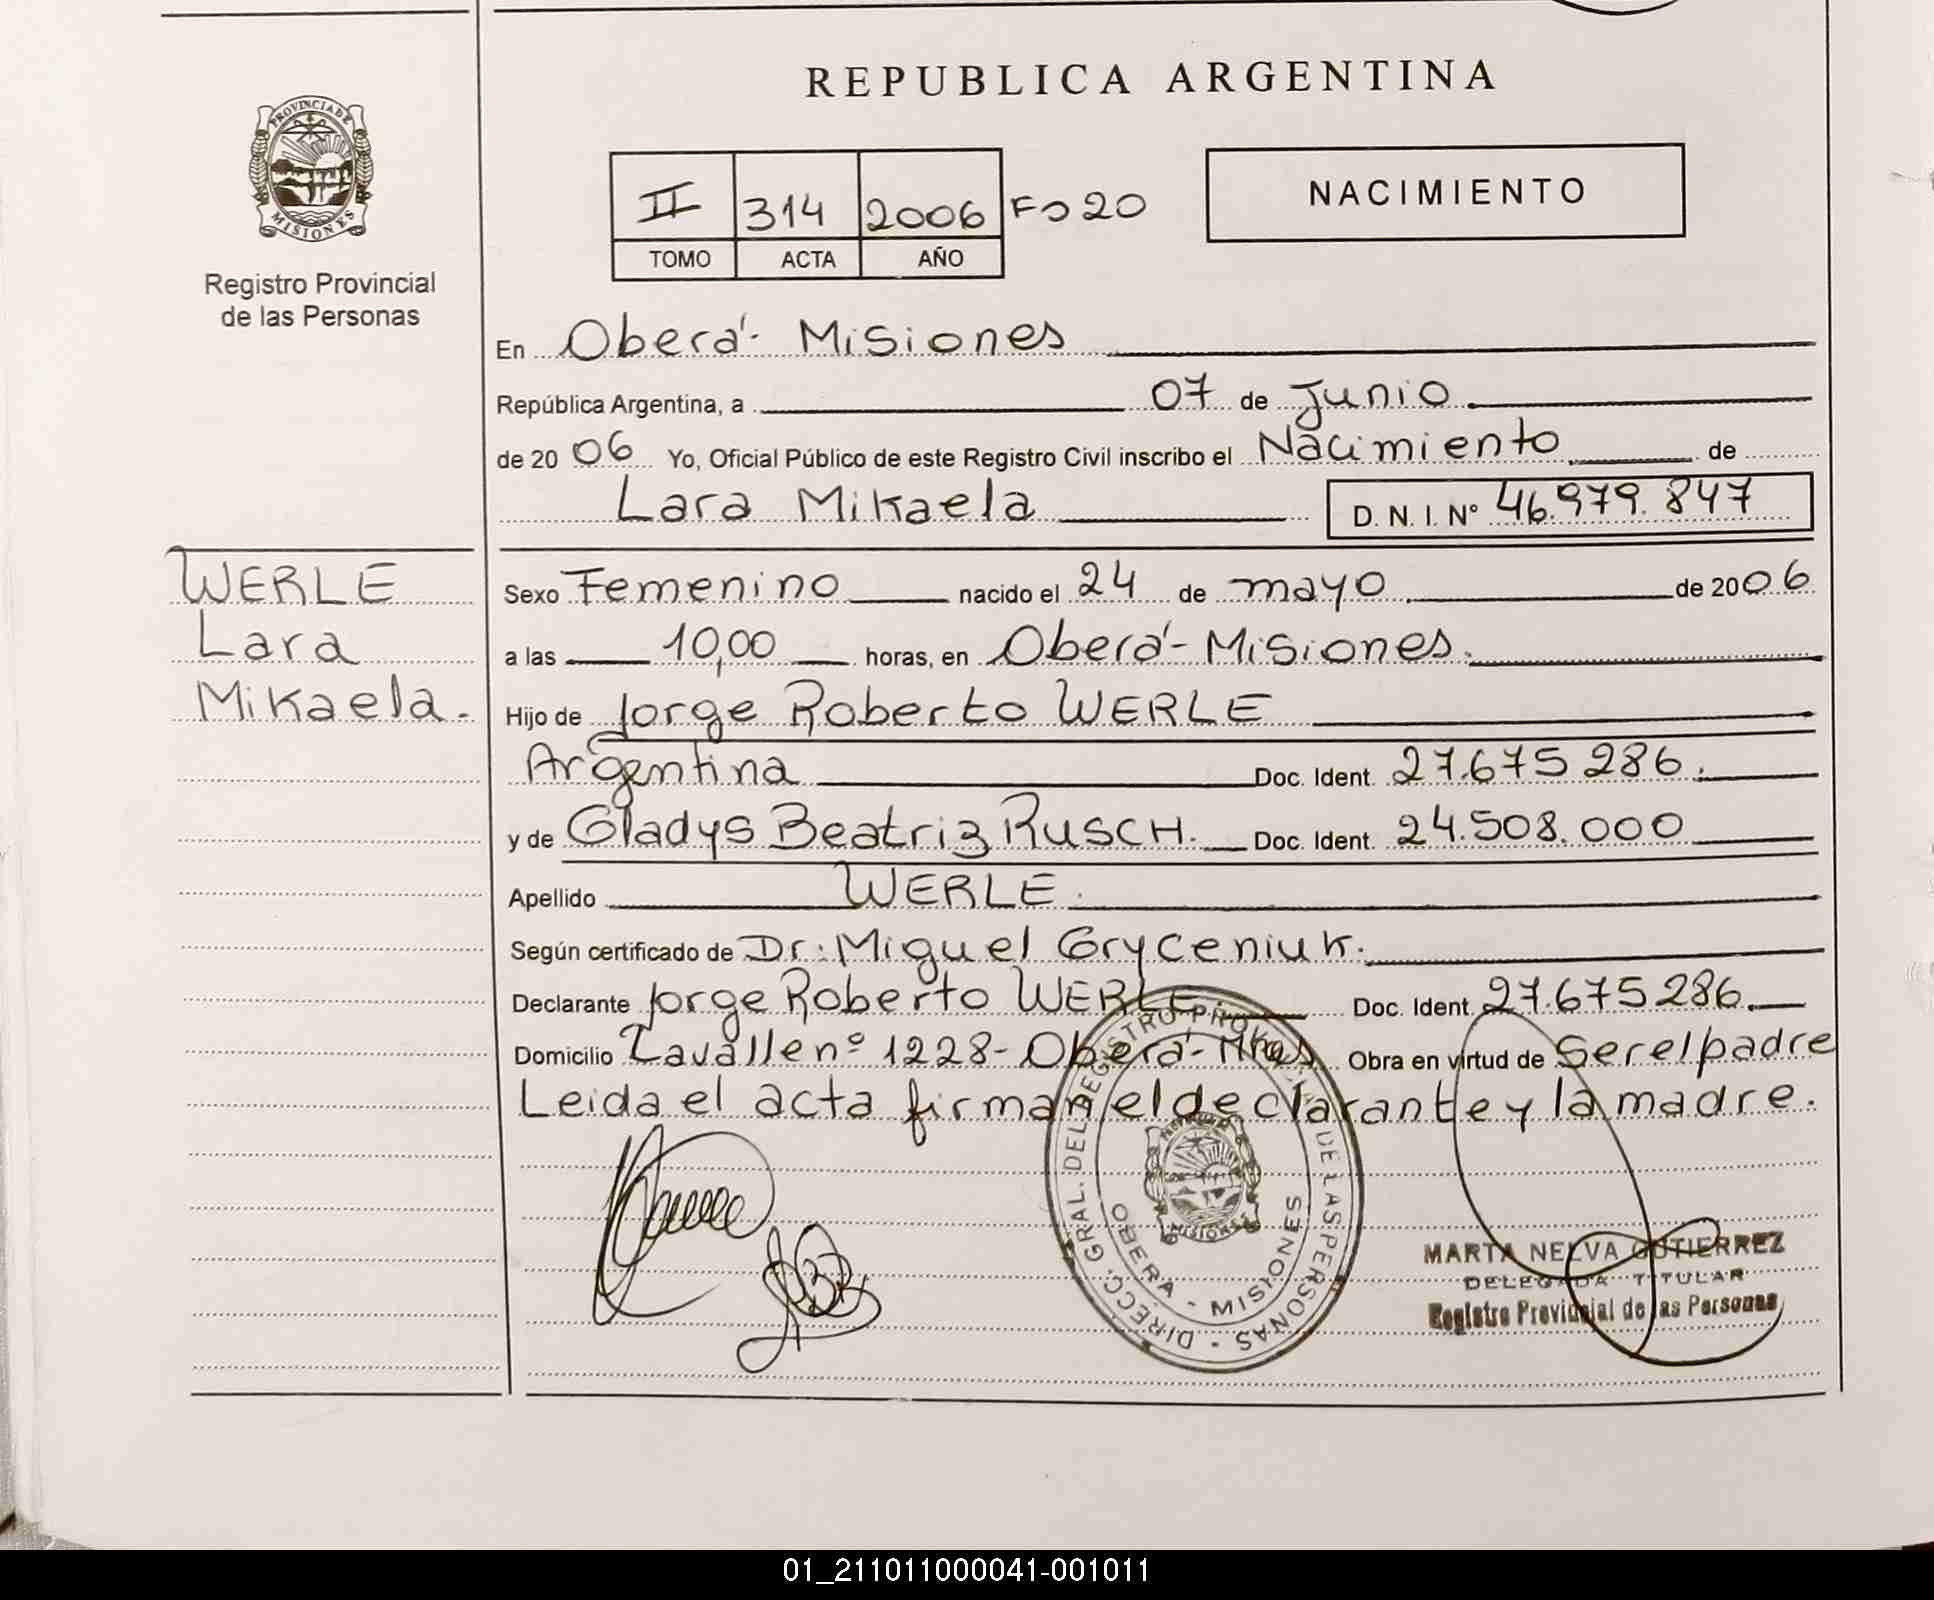 REPUBLICA ARGENTINA
PROVINCIA DE
MISIONES
Registro Provincial
de las Personas
II 314 2006 Fo 20
TOMO ACTA AÑO
NACIMIENTO
En Oberá - Misiones
República Argentina, a 07 de Junio
de 20 06 Yo, Oficial Público de este Registro Civil inscribo el Nacimiento de
Lara Mikaela D. N. I. Nº 46.979.847
WERLE
Lara
Mikaela.
Sexo Femenino nacido el 24 de mayo de 2006
a las 10,00 horas, en Oberá - Misiones.
Hijo de Jorge Roberto WERLE
Argentina Doc. Ident. 27.675 286.
y de Gladys Beatriz RUSCH. Doc. Ident. 24.508.000
Apellido WERLE.
Según certificado de Dr. Miguel Gryceniuk.
Declarante Jorge Roberto WERLE Doc. Ident. 27.675 286.
Domicilio Lavalle nº 1228 - Oberá - Mnes Obra en virtud de Ser el padre
Leida el acta firman el declarante y la madre.
DIRECC. GRAL. DEL REGISTRO PROVINCIAL DE LAS PERSONAS
OBERA - MISIONES
MISIONES
MARTA NELVA GUTIERREZ
DELEGADA TITULAR
Registro Provincial de las Personas
01_211011000041-001011